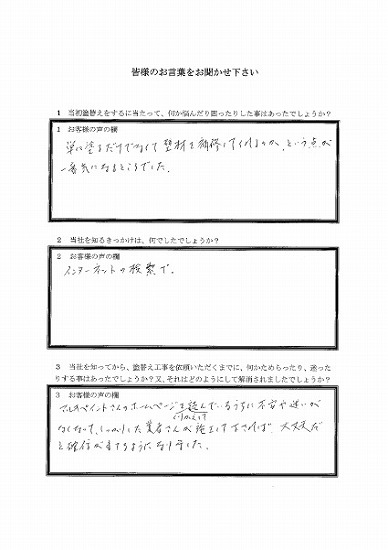 皆様のお言葉をお聞かせ下さい
1 当初塗替えをするに当たって、何か悩んだり困ったりした事はあったでしょうか?
1 お客様の声の欄
単に塗るだけでなくて壁材を補修してくれるのか、という点が
一番気になるところでした。
2 当社を知るきっかけは、何でしたでしょうか?
2 お客様の声の欄
インターネットの検索で。
3 当社を知ってから、塗替え工事を依頼いただくまでに、何かためらったり、迷った
りする事はあったでしょうか?又、それはどのようにして解消されましたでしょうか?
3 お客様の声の欄
ペイントさんのホームページを読んでいるうちに不安や迷いが
なくなって、しっかりした業者さんが施工して下されば、大丈夫だ
と確信がもてるようになりました。